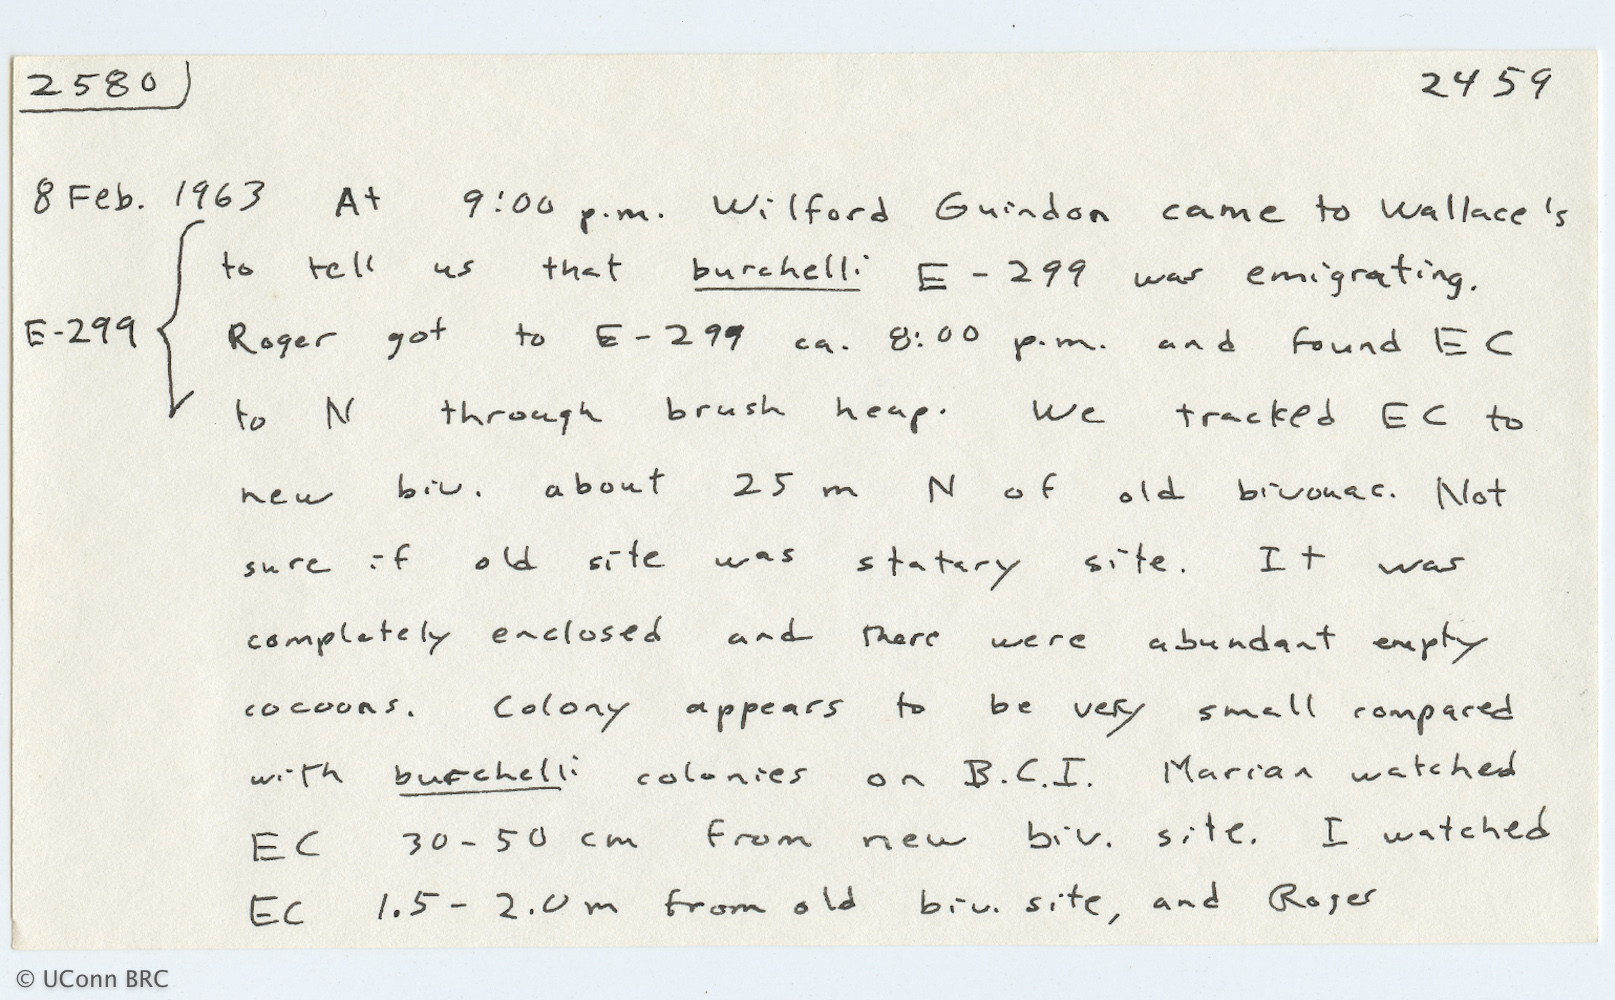 2580 2459
8 Feb. 1963 At 9:00 p.m. Wilford Guindon came to Wallace's
to tell us that burchelli E-299 was emigrating.
E-299 Roger got to E-299 ca. 8:00 p.m. and found EC
to N through brush heap. We tracked EC to
new biv. about 25 m N of old bivouac. Not
sure if old site was statary site. It was
completely enclosed and there were abundant empty
cocoons. Colony appears to be very small compared
with burchelli colonies on B.C.I. Marian watched
EC 30-50 cm from new biv. site. I watched
EC 1.5-2.0 m from old biv. site, and Roger
© UConn BRC